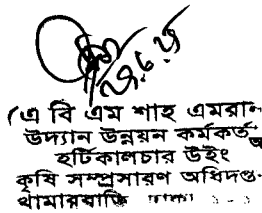 ২৯.৮.২৯
(এ বি এম শাহ এমরান
উদ্যান উন্নয়ন কর্মকর্তা
হর্টিকালচার উইং
কৃষি সম্প্রসারণ অধিদপ্ত
খামারবাড়ি ঢাকা